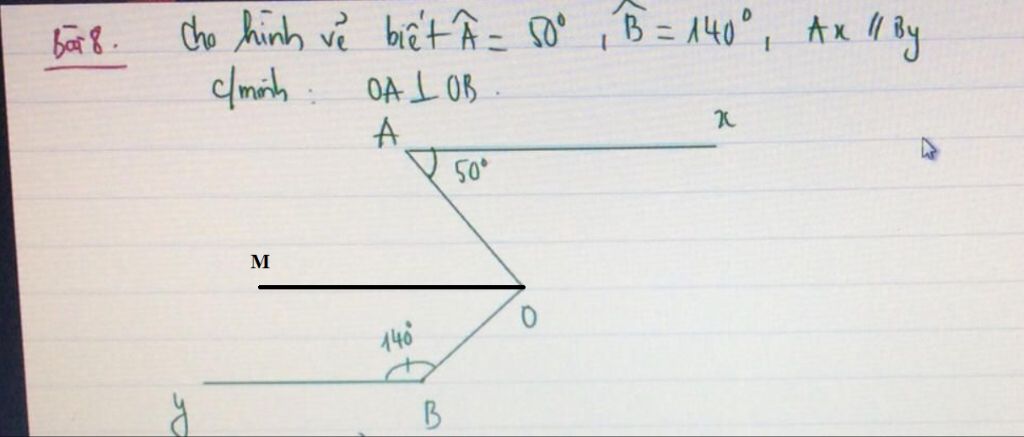 Bài 8. Cho hình vẽ biết Â = 50°, B̂ = 140°, Ax // By
c/minh: OA ⊥ OB.
A
x
50°
M
O
140°
y
B